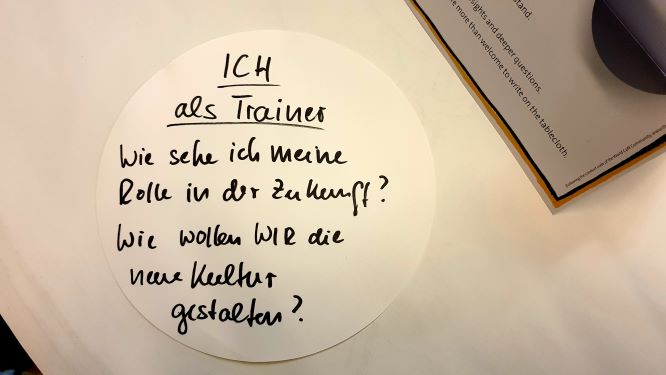 ICH
als Trainer
Wie sehe ich meine
Rolle in der Zukunft?
Wie wollen WIR die
neue Kultur
gestalten?
stand.
sights and deeper questions.
e more than welcome to write on the tablecloth.